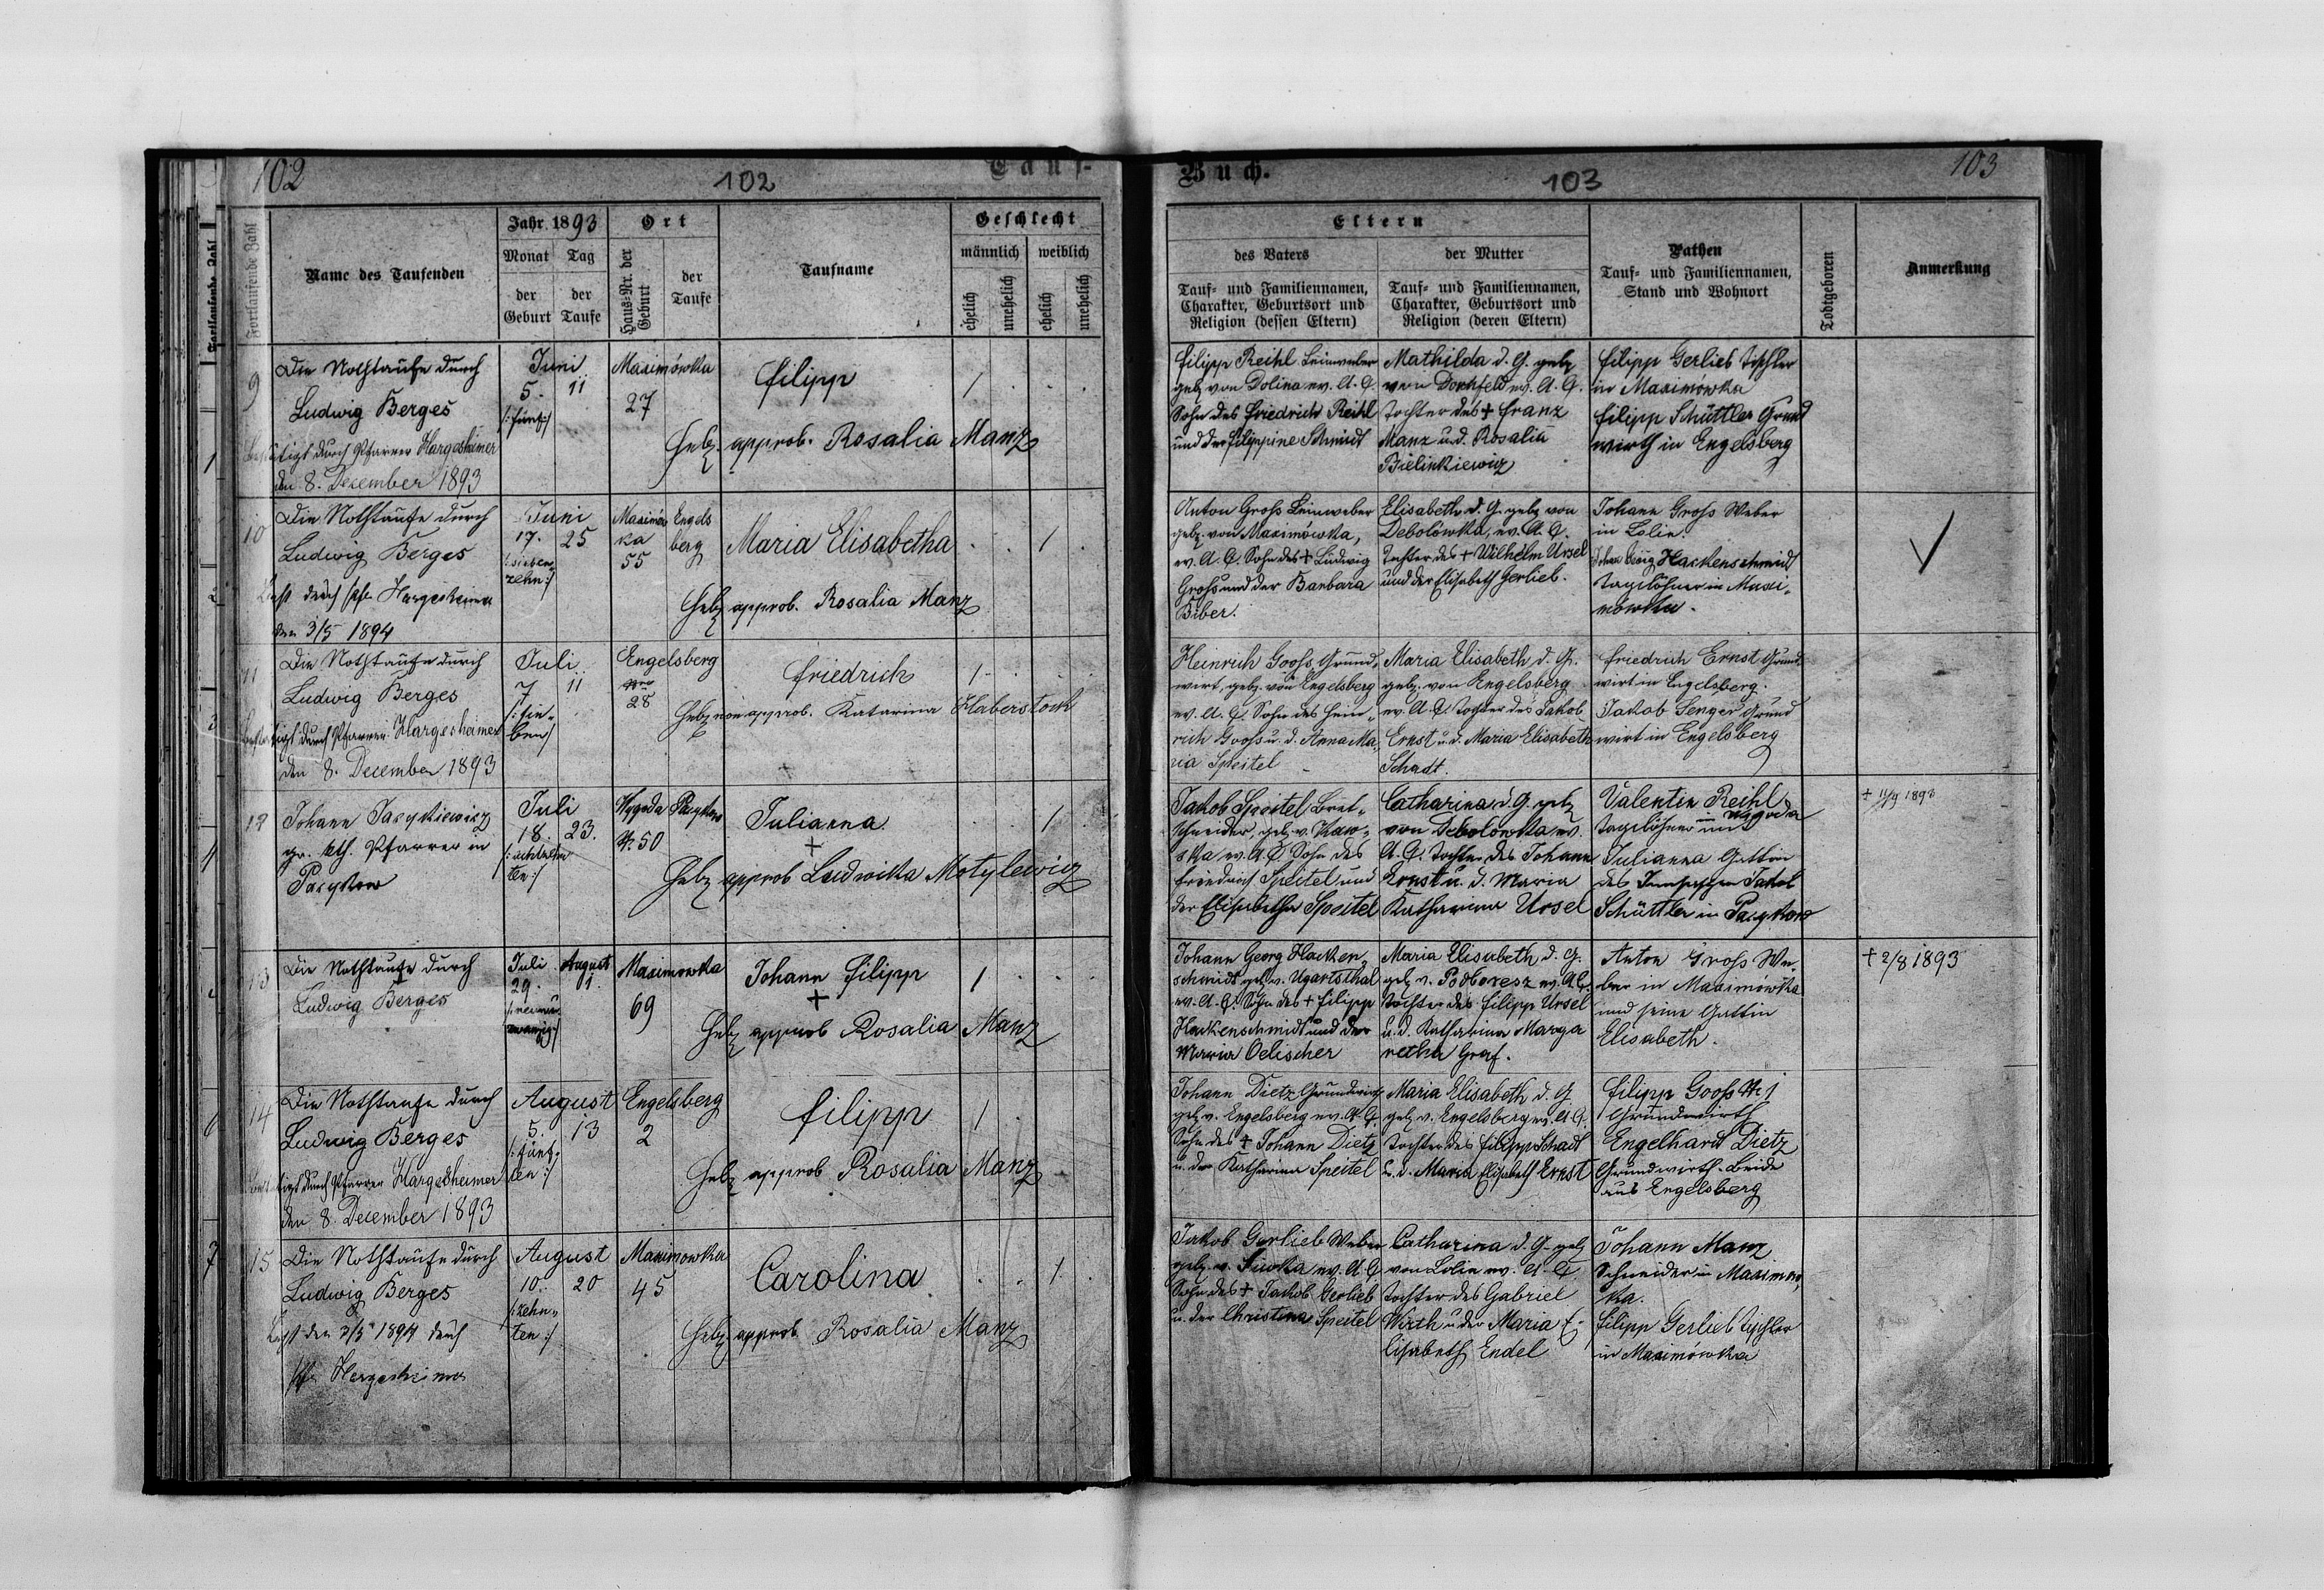 102
102
Tauf-
Fortlaufende Zahl
Name des Taufenden
Jahr 1893
Monat
der
Geburt
Tag
der
Taufe
Ort
Haus-Nr. der Geburt
der
Taufe
Taufname
Geschlecht
männlich
weiblich
ehelich
unehelich
ehelich
unehelich
9
Die Nothtaufe durch
Ludwig Berges
Bestätigt durch Pfarrer Hargesheimer
den 8. Dezember 1893
Juni
5. 11
/:fünf:/
Maximówka
27
Filipp
1
Heb. approb. Rosalia Manz
10
Die Nothtaufe durch
Ludwig Berges
Best durch Pfr Hargesheimer
den 3/5 1894
Juni
17. 25
/:sieben-
zehn:/
Maximów
ka
55
Engels
berg
Maria Elisabetha
1
Heb approb. Rosalia Manz
11
Die Nothtaufe durch
Ludwig Berges
Bestätigt durch Pfarrer Hargesheimer
den 8. December 1893
Juli
7 11
/:sie-
ben:/
Engelsberg
28
Friedrich
1
Heb non approb. Katarina Haberstock
12
Johann Jasykiewicz
gr. kth. Pfarrer in
Pacykow
Juli
18. 23.
/:achtzehn
ten:/
Wygoda
№ 50
Pacykow
Julianna
+
1
Heb approb Ludwika Motylewicz
13
Die Nothtaufe durch
Ludwig Berges
Juli
29.
August
01.
Maximowka
69
Johann Filipp
+
1
Heb approb Rosalia Manz
14
Die Nothtaufe durch
Ludwig Berges
Bestätigt durch Pfarrer Hargesheimer
den 8. December 1893
August
5. 13
/:fünf-
ten:/
Engelsberg
2
Filipp
1
Heb approb Rosalia Manz
15
Die Nothtaufe durch
Ludwig Berges
Best den 3/5 1894 durch
Pfr Hargesheimer
August
10. 20
/:zehn-
ten:/
Maximowka
45
Carolina
1
Heb approb. Rosalia Manz
Buch.
103
103
Eltern
des Vaters
Tauf- und Familiennamen,
Charakter, Geburtsort und
Religion (dessen Eltern)
der Mutter
Tauf- und Familiennamen,
Charakter, Geburtsort und
Religion (deren Eltern)
Pathen
Tauf- und Familiennamen,
Stand und Wohnort
Todtgeboren
Anmerkung
Filipp Reihl Leinweber
geb von Dolina ev. A. C.
Sohn des Friedrich Reihl
und der Filippine Schmidt
Mathilda d. G. geb
von Dornfeld ev. A. C.
Tochter des + Franz
Manz u d. Rosalia
Bielinkiewicz
Filipp Gerlieb Tischler
in Maximówka
Filipp Schüttler Grund
wirth in Engelsberg
Anton Gross Leinweber
geb. von Maximówka,
ev. A. C. Sohn des + Ludwig
Gross und der Barbara
Biber.
Elisabeth d. G. geb von
Debolowka, ev. A. C.
Tochter des + Wilhelm Ursel
und der Elisabeth Gerlieb.
Johann Gross Weber
in Lolin.
Johan Georg Hackenschmidt
Taglöhner in Maxi-
mówka.
Heinrich Gooss, Grund-
wirt, geb. von Engelsberg
ev. A. C. Sohn des Hein-
rich Gooss u. d. Anna Ma-
ria Speitel
Maria Elisabeth d. G.
geb. von Engelsberg
ev. A. C. Tochter des Jakob
Ernst u. d. Maria Elisabeth
Schadt.
Friedrich Ernst Grund
wirt in Engelsberg.
Jakob Senger Grund
wirt in Engelsberg
Jakob Speitel Bret-
schneider, geb. v. Kaw-
ska ev. A. C. Sohn des
Friedrich Speitel und
der Elisabetha Speitel
Catharina d. G. geb
von Debolowka ev.
A. C. Tochter des Johann
Ernst u. d. Maria
Katharina Ursel
Valentin Reihl
Taglöhner in Wygoda
Julianna Gattin
des Jakob
Schüttler in Pacykow
+ 11/9 1893
Johann Georg Hacken-
schmidt geb. v. Ugartsthal
ev. A. C. Sohn des + Filipp
Hackenschmidt und der
Maria Oelischer
Maria Elisabeth d. G.
geb. v. Podboresz ev. A. C.
Tochter des Filipp Ursel
u. d. Katharina Marga
retha Graf.
Anton Gross We-
ber in Maximowka
und seine Gattin
Elisabeth.
+ 2/8 1893
Johann Dietz Grundwirth
geb v. Engelsberg ev. A. C.
Sohn des + Johann Dietz
u. der Katharina Speitel
Maria Elisabeth d. G
geb v. Engelsberg ev. A. C.
Tochter des Filipp Schadt
u. d. Maria Elisabeth Ernst
Filipp Gooss № 1
Grundwirth
Engelhard Dietz
Grundwirth. Beide
aus Engelsberg
Jakob Gerlieb Weber
geb. v. ev. A. C
Sohn des + Jakob Gerlieb
u. der Christina Speitel
Catharina d. G. geb
von Lolin ev. A. C
Tochter des Gabriel
Wirth u der Maria E-
lisabeth Endel
Johann Manz
Schneider in Maximow-
ka.
Filipp Gerlieb Tischler
in Maximówka